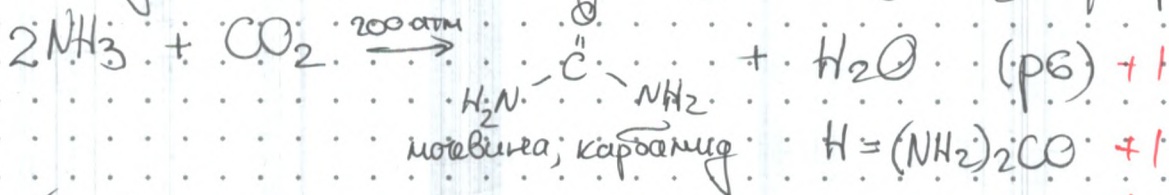 2NH3 + CO2 200 атм → O
C
H2N NH2 + H2O (р6) +1
мочевина; карбамид H = (NH2)2CO +1